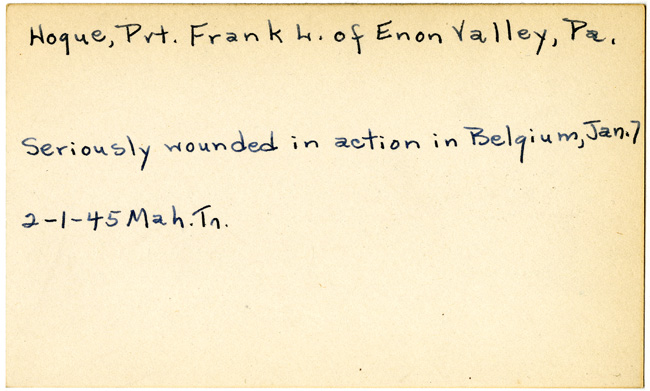 Hogue, Pvt. Frank L. of Enon Valley, Pa.
Seriously wounded in action in Belgium, Jan. 7
2-1-45 Mah. Tn.